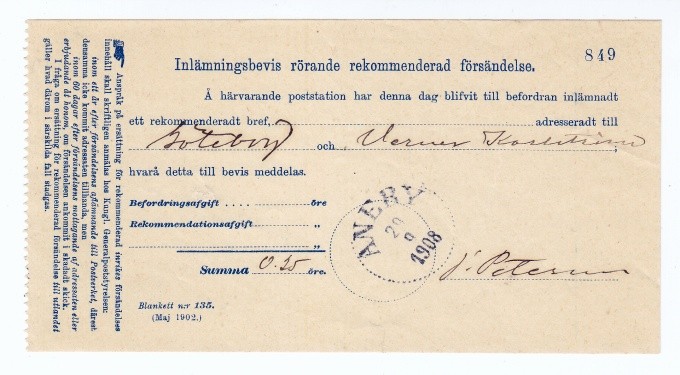 849
Inlämningsbevis rörande rekommenderad försändelse.
Å härvarande poststation har denna dag blifvit till befordran inlämnadt
ett rekommenderadt bref, adresseradt till
Göteborg och Verner
hvarå detta till bevis meddelas.
Befordringsafgift . . . . öre
Rekommendationsafgift „
„
Summa 0.25 öre.
ANEBY
1908
J. Peterson
Blankett n:r 135.
(Maj 1902.)
Anspråk på ersättning för rekommenderad inrikes försändelses
innehåll skall skriftligen anmälas hos Kungl. Generalpoststyrelsen:
inom ett år efter försändelsens aflämnande till Postverket, därest
densamma icke kommit adressaten tillhanda, men
inom 60 dagar efter försändelsens mottagande af adressaten eller
erbjudande åt honom, om försändelsen ankommit i skadadt skick.
I fråga om ersättning för rekommenderad försändelse till utlandet
gäller hvad därom i särskilda fall stadgas.